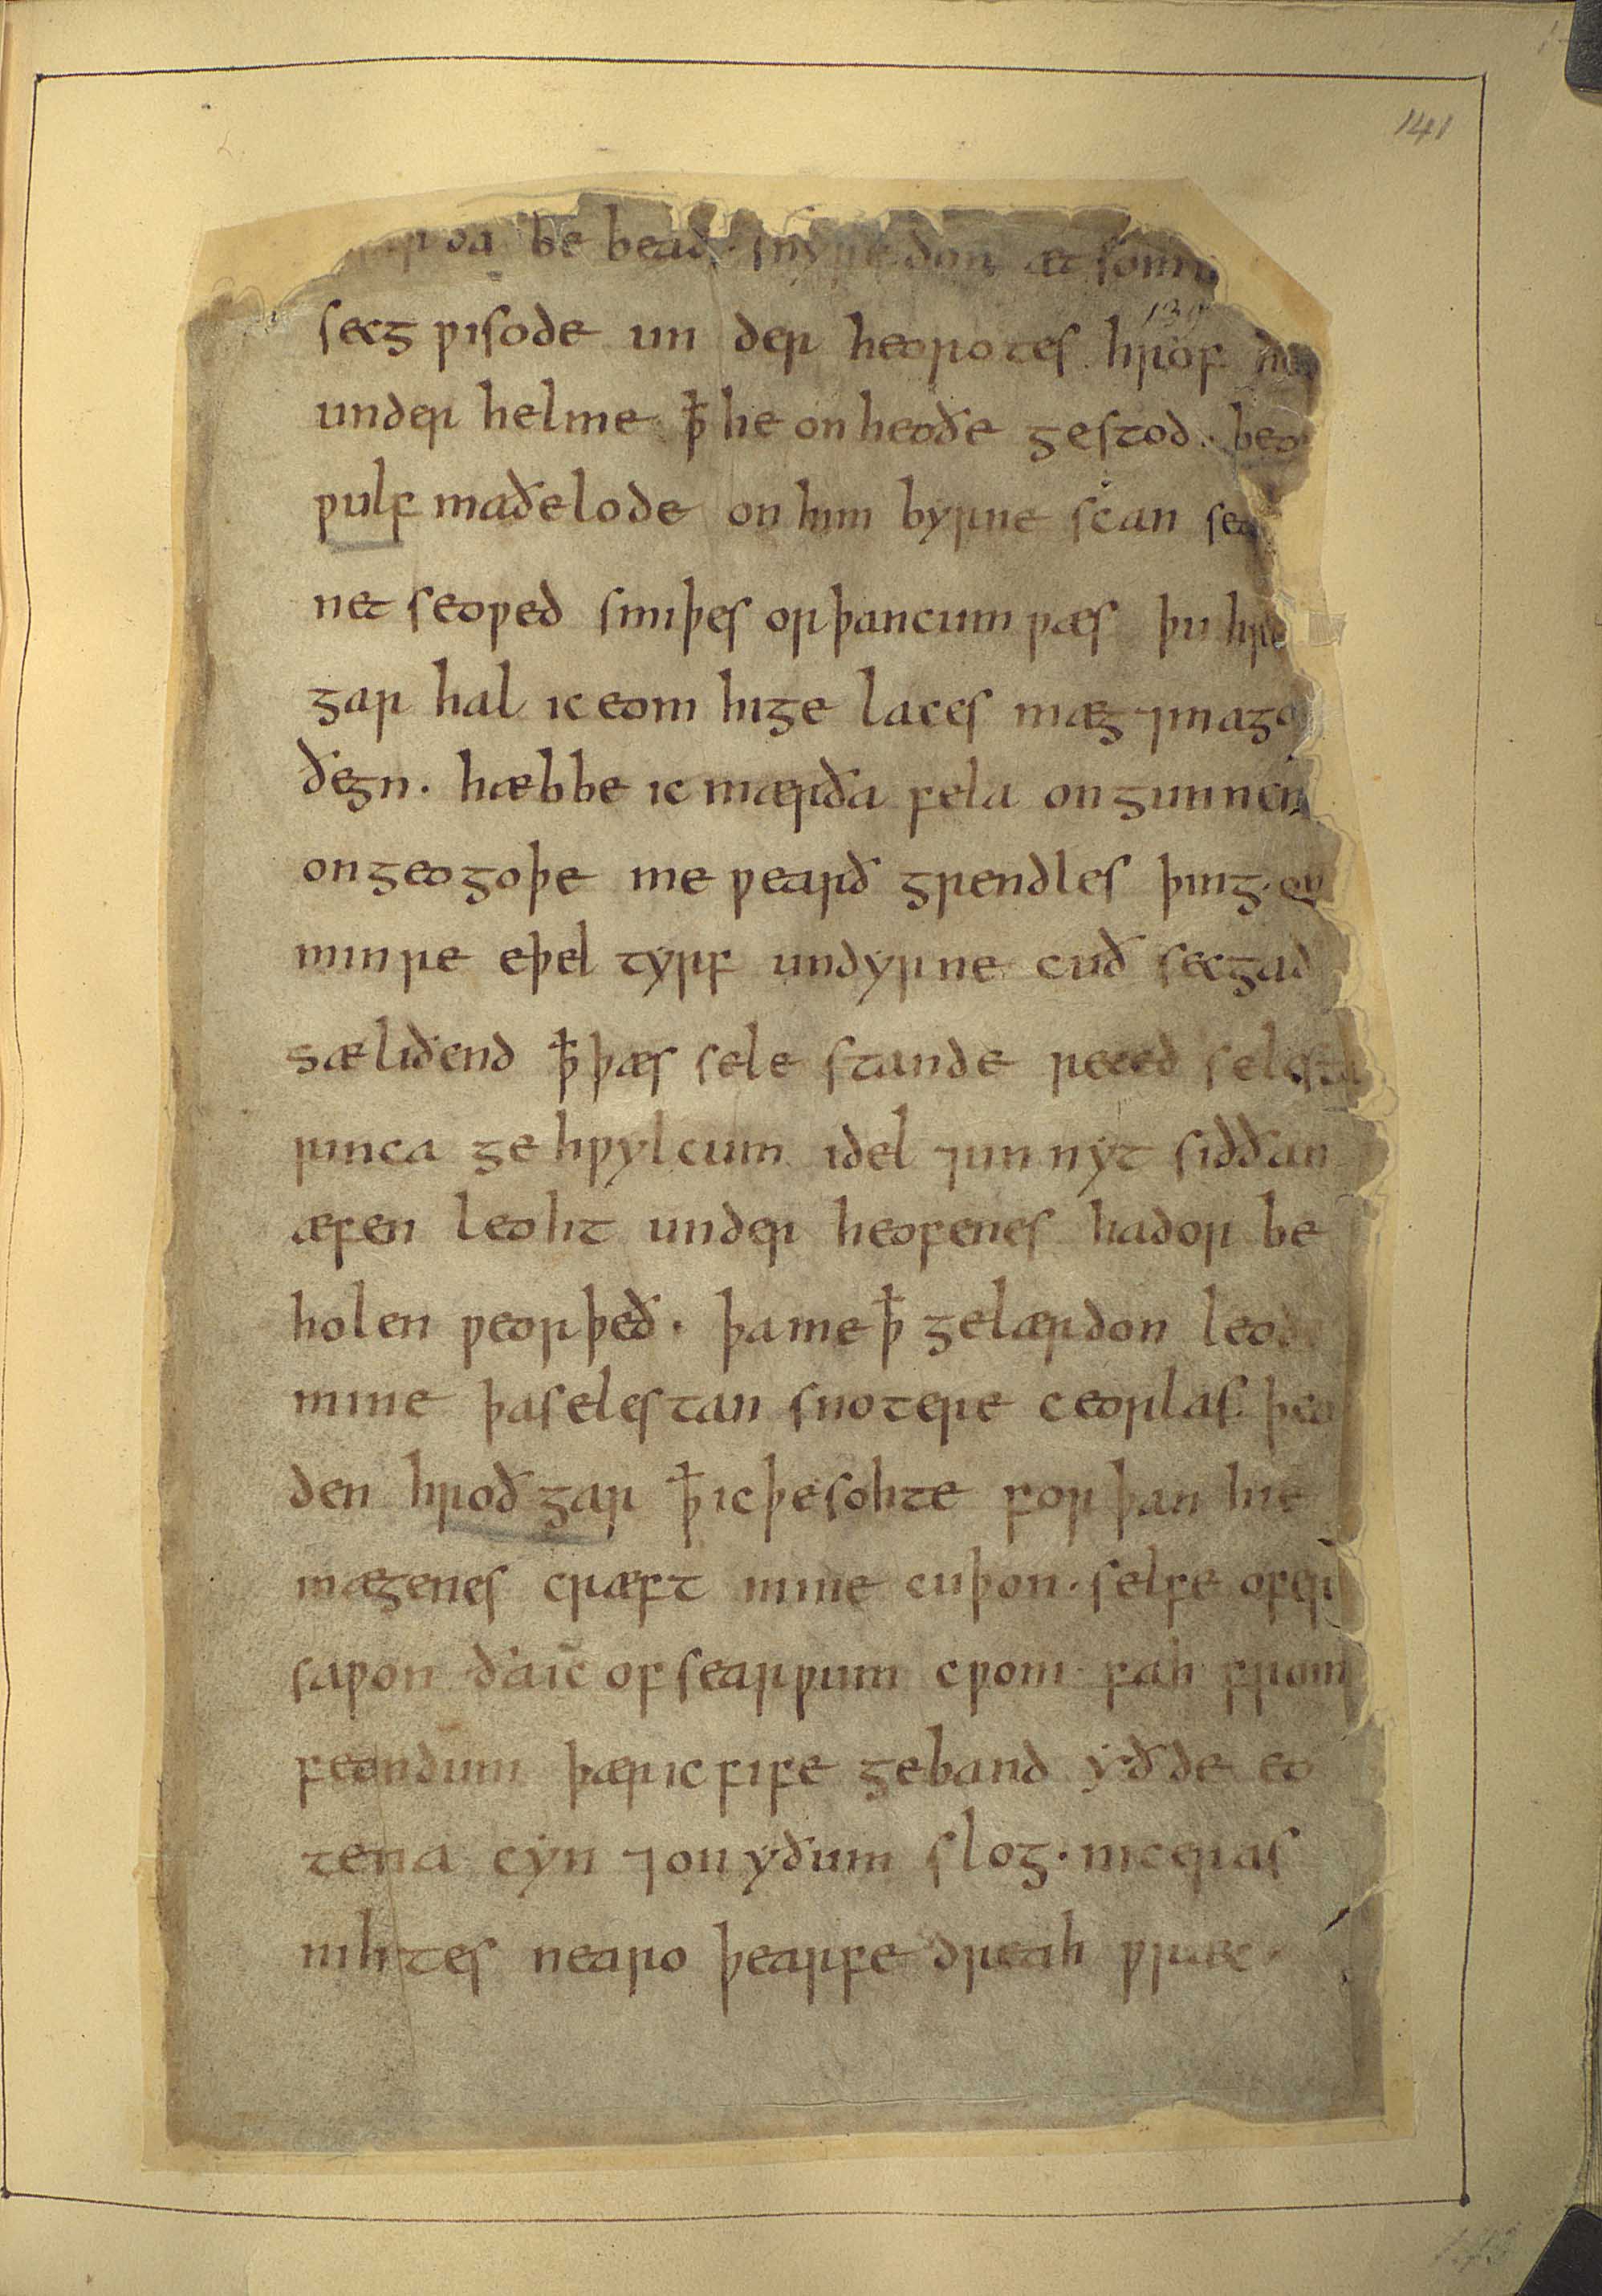 141
be bead · snyredon æt som
139
secg ƿisode un der heorotes hrof
under helme ꝥ he on heoðe gestod · beo
ƿulf maðelode on him byrne scan sea
net seoƿed smiþes orþancum ƿæs þu hro
gar hal ic eom hige laces mæg ⁊ mago
ðegn · hæbbe ic mærða fela on gunnen
on geogoþe me ƿearð grendles þing on
minre eþel tyrf undyrne cuð secgað
sæliðend ꝥ þæs sele stande reced selesta
rinca ge hƿylcum idel ⁊ un nyt siððan
æfen leoht under heofenes hador be
holen ƿeorþeð · þa me ꝥ gelærdon leode
mine þa selestan snotere ceorlas þeo
den hroð gar ꝥ ic þe sohte for þan hie
mægenes cræft mine cuþon · selfe ofer
saƿon ða ic of searƿum cƿom fah from
feondum þær ic fife geband yðde eo
tena cyn ⁊ on yðum slog · niceras
nihtes nearo þearfe dreah ƿræc ·